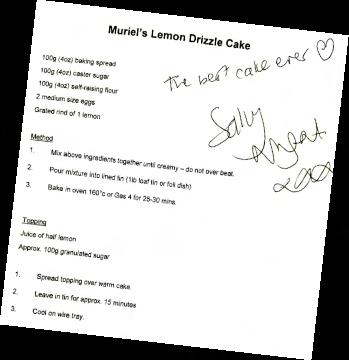 Muriel's Lemon Drizzle Cake
100g (4oz) baking spread
100g (4oz) caster sugar
100g (4oz) self-raising flour
2 medium size eggs
Grated rind of 1 lemon
The best cake ever ♡
Sally
Method
1. Mix above ingredients together until creamy – do not over beat.
2. Pour mixture into lined tin (1lb loaf tin or foil dish)
3. Bake in oven 160°c or Gas 4 for 25-30 mins.
Topping
Juice of half lemon
Approx. 100g granulated sugar
1. Spread topping over warm cake.
2. Leave in tin for approx. 15 minutes
3. Cool on wire tray.